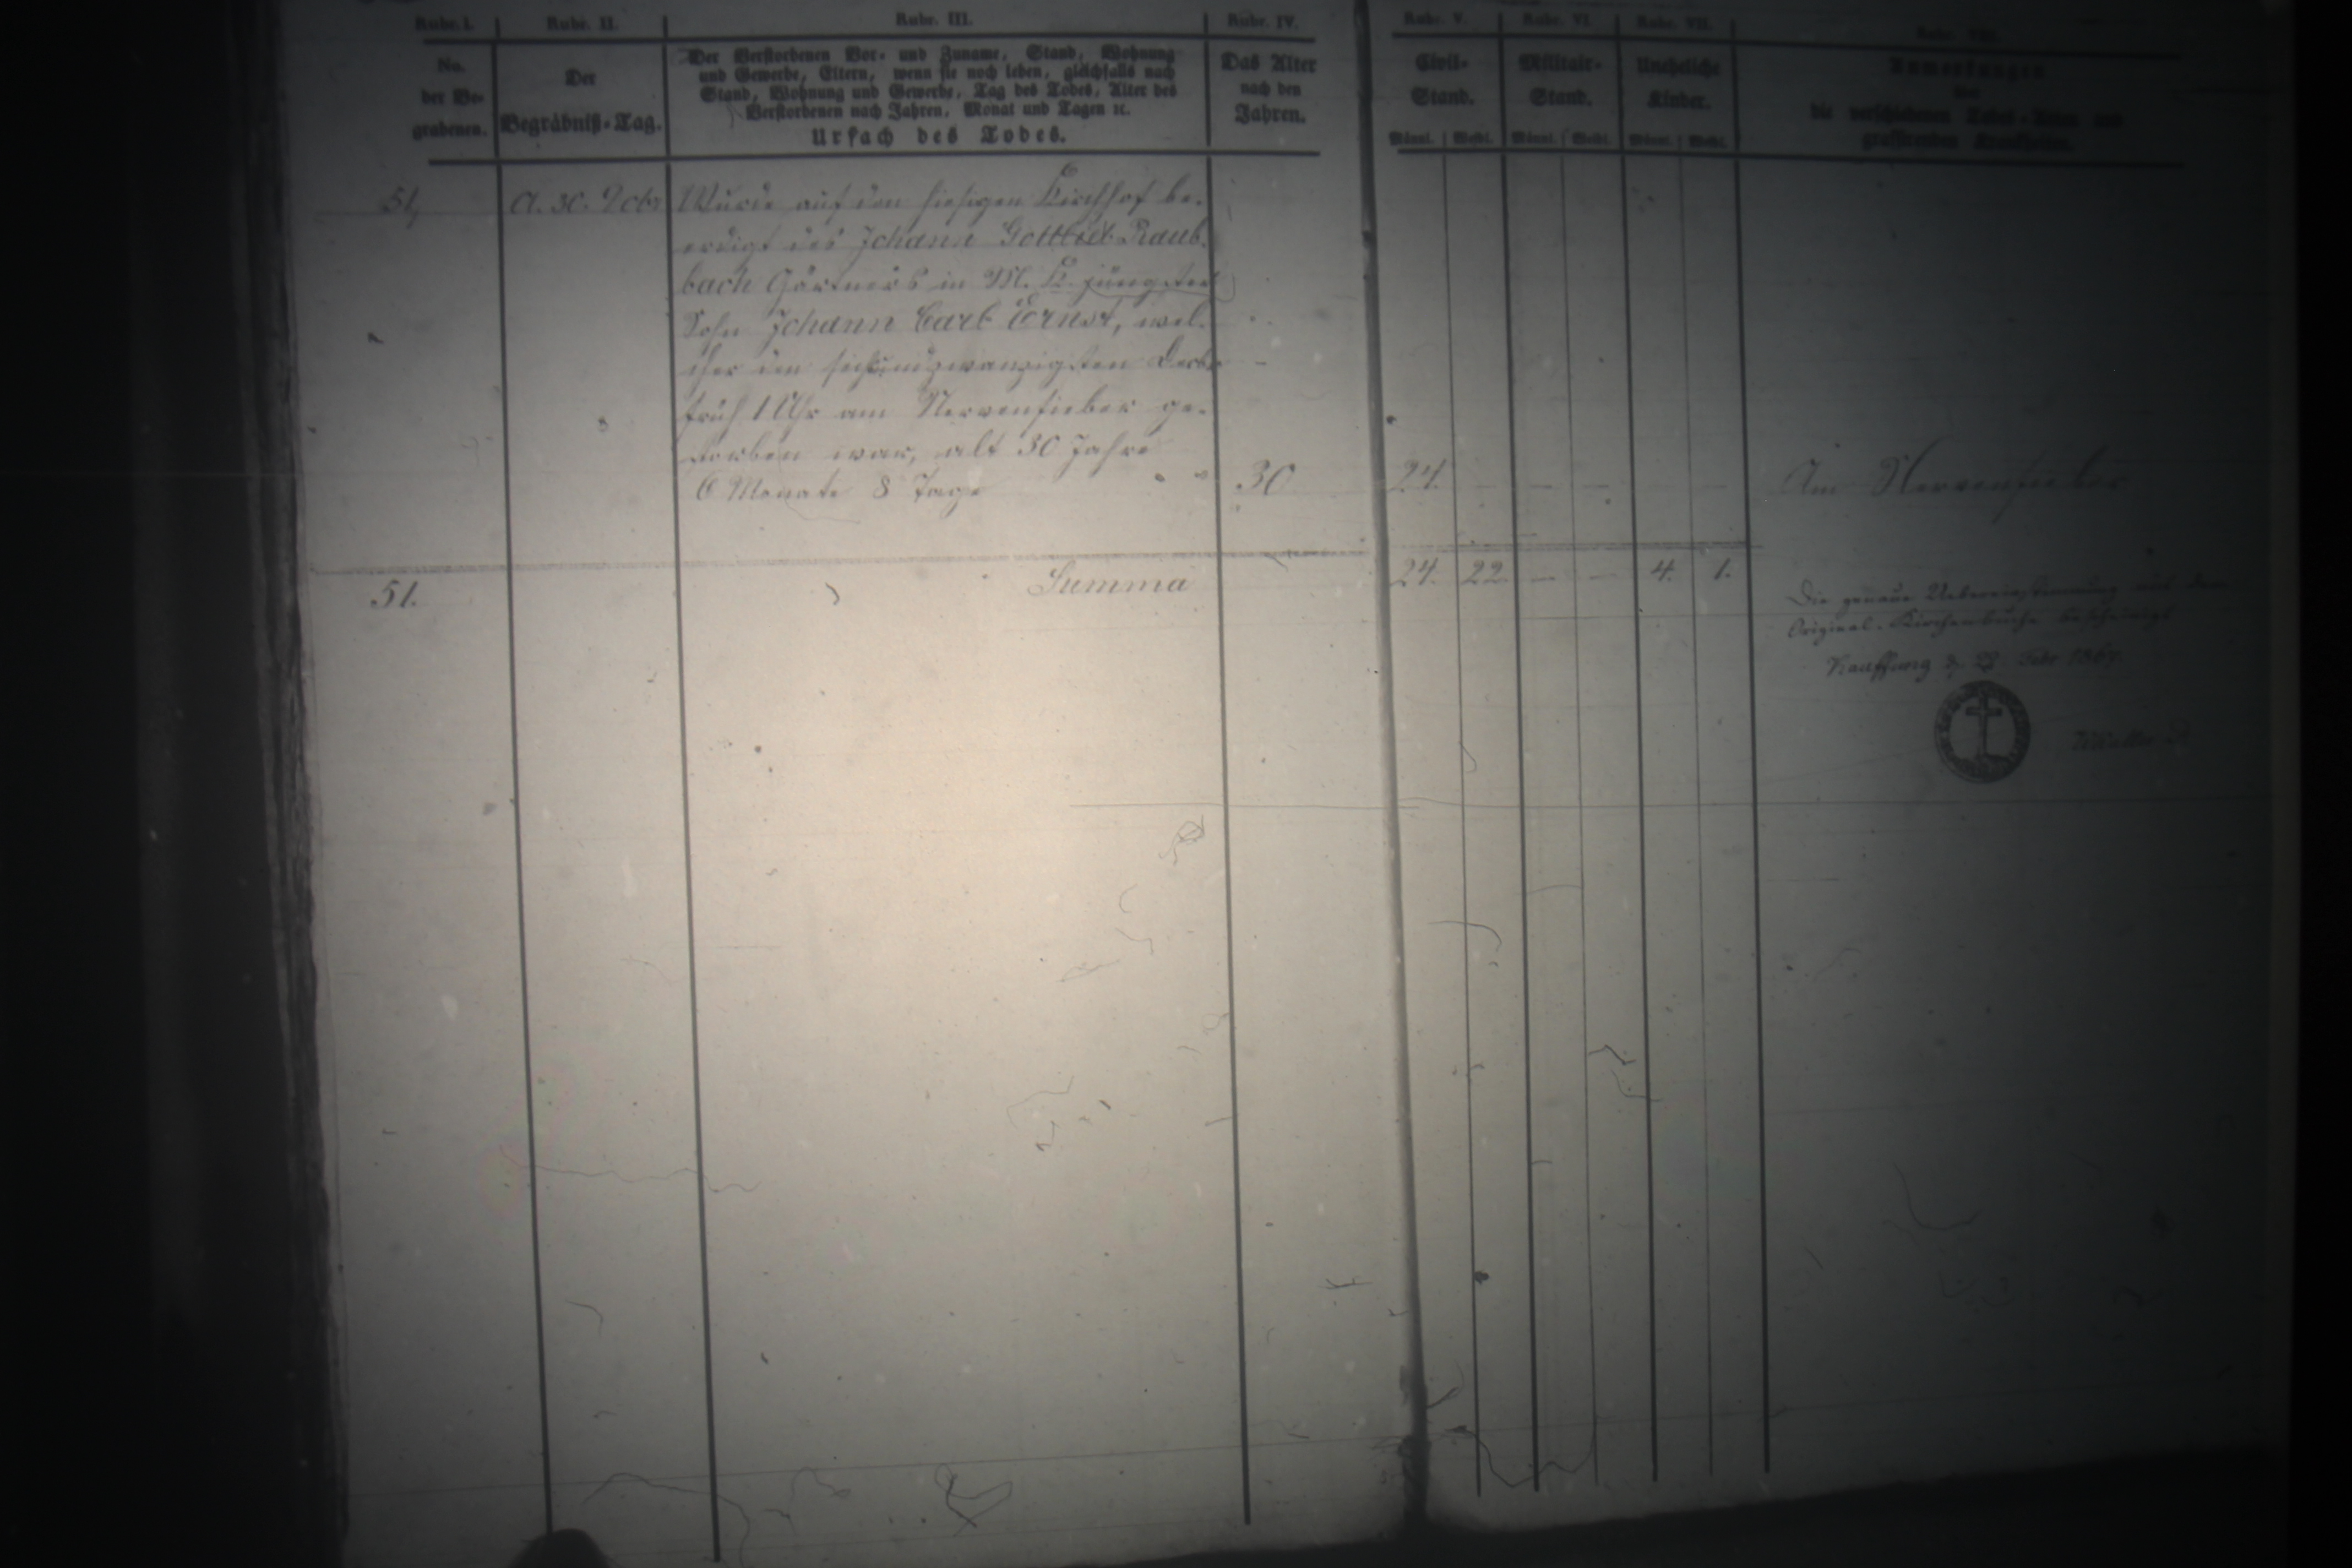 Rubr. I.
Rubr. II.
Rubr. III.
Rubr. IV.
Rubr. V.
Rubr. VI.
Rubr. VII.
Rubr. VIII.
No.
der Be-
grabenen.
Der
Begräbniß-Tag.
Der Verstorbenen Vor- und Zuname, Stand, Wohnung
und Gewerbe, Eltern, wenn sie noch leben, gleichfalls nach
Stand, Wohnung und Gewerbe, Tag des Todes, Alter des
Verstorbenen nach Jahren, Monat und Tagen ꝛc.
Ursach des Todes.
Das Alter
nach den
Jahren.
Civil-
Stand.
Männl. Weibl.
Militair-
Stand.
Männl. Weibl.
Uneheliche
Kinder.
Männl. Weibl.
Anmerkungen
über
die verschiedenen Todes-Arten und
grassirenden Krankheiten.
51,
d. 30. Dcbr
Wurde auf den hiesigen Kirchhof be-
erdigt des Johann Gottlieb Raub-
bach Gärtners in M. K. jüngster
Sohn Johann Carl Ernst, wel-
cher den sechsundzwanzigsten Decbr
früh 1 Uhr am Nervenfieber ge-
storben war, alt 30 Jahre
6 Monate 8 Tage
30
24.
Am Nervenfieber
51.
Summa
24. 22 — — 4. 1.
Die genaue Uebereinstimmung mit dem
Original-Kirchenbuche bescheinigt
Kauffung d. 28 Febr 186